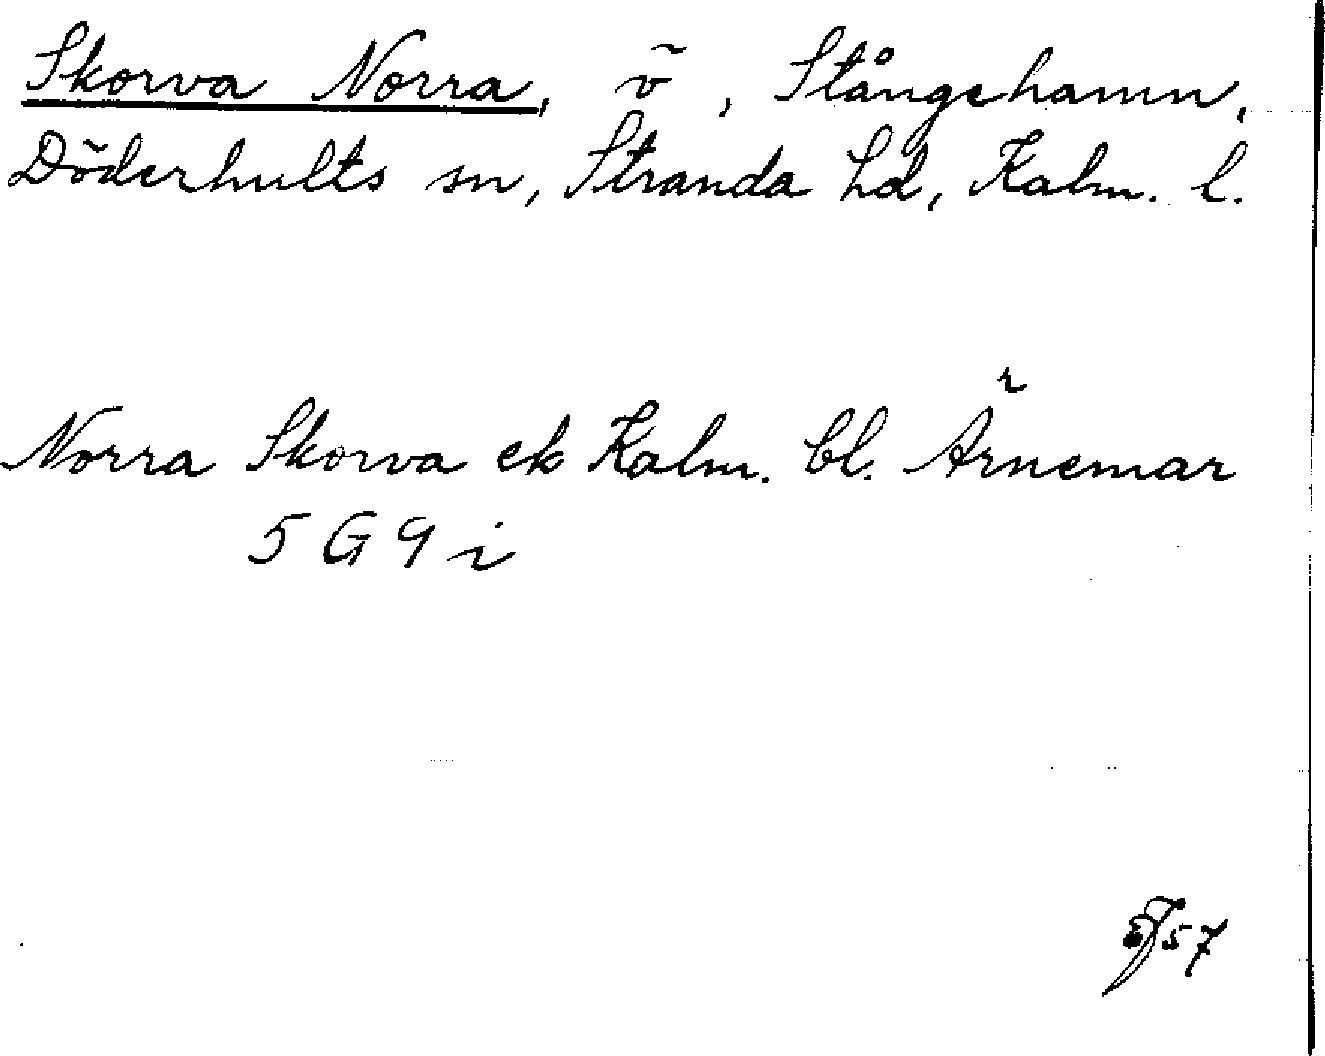 Skorva Norra, ö, Stångehamn,
Döderhults sn, Stranda hd, Kalm. l.
Norra Skorva ek Kalm. bl. Ärnemar
5 G 9 i
57